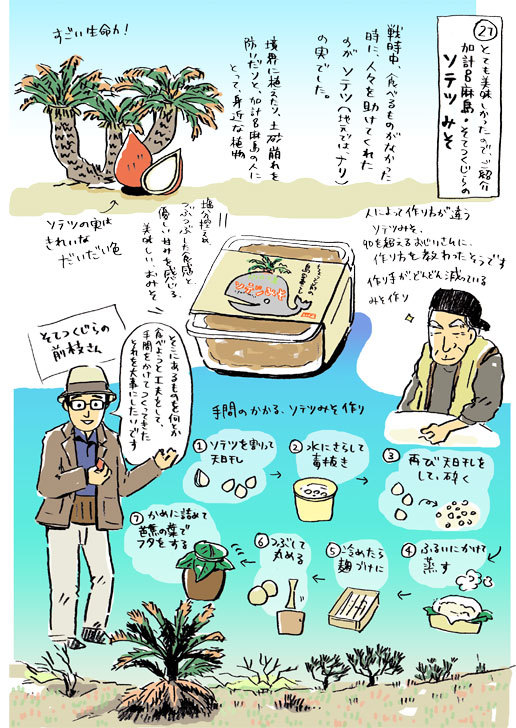 27
とても美味しかったので、ご紹介
加計呂麻島・そてつくじらの
ソテツ みそ
すごい生命力!
戦時中、食べるものがなかった
時に、人々を助けてくれた
のが ソテツ(地元では、ナリ)
の実でした。
境界に植えたり、土砂崩れを
防いだりと、加計呂麻島の人に
とって、身近な植物
ソテツの実は
きれいな
だいだい色
塩分控えめ、
つぶつぶした食感と
優しい甘みを感じる、
美味しい、おみそ
ソテツみそ
人によって作り方が違う
ソテツみそ、
90を超えるおじいさんに、
作り方を教わったそうです
作り手がどんどん減っている
みそ作り
そてつくじらの
前枝さん
そこにあるものを何とか
食べようと工夫をして、
手間をかけてつくってきた
それを大事にしたいです
手間のかかる、ソテツみそ作り
①ソテツを割って
天日干し
②水にさらして
毒抜き
③再び天日干しを
して、砕く
④ふるいにかけて
蒸す
⑤冷めたら
麹づけに
⑥つぶして
丸める
⑦かめに詰めて
芭蕉の葉で
フタをする